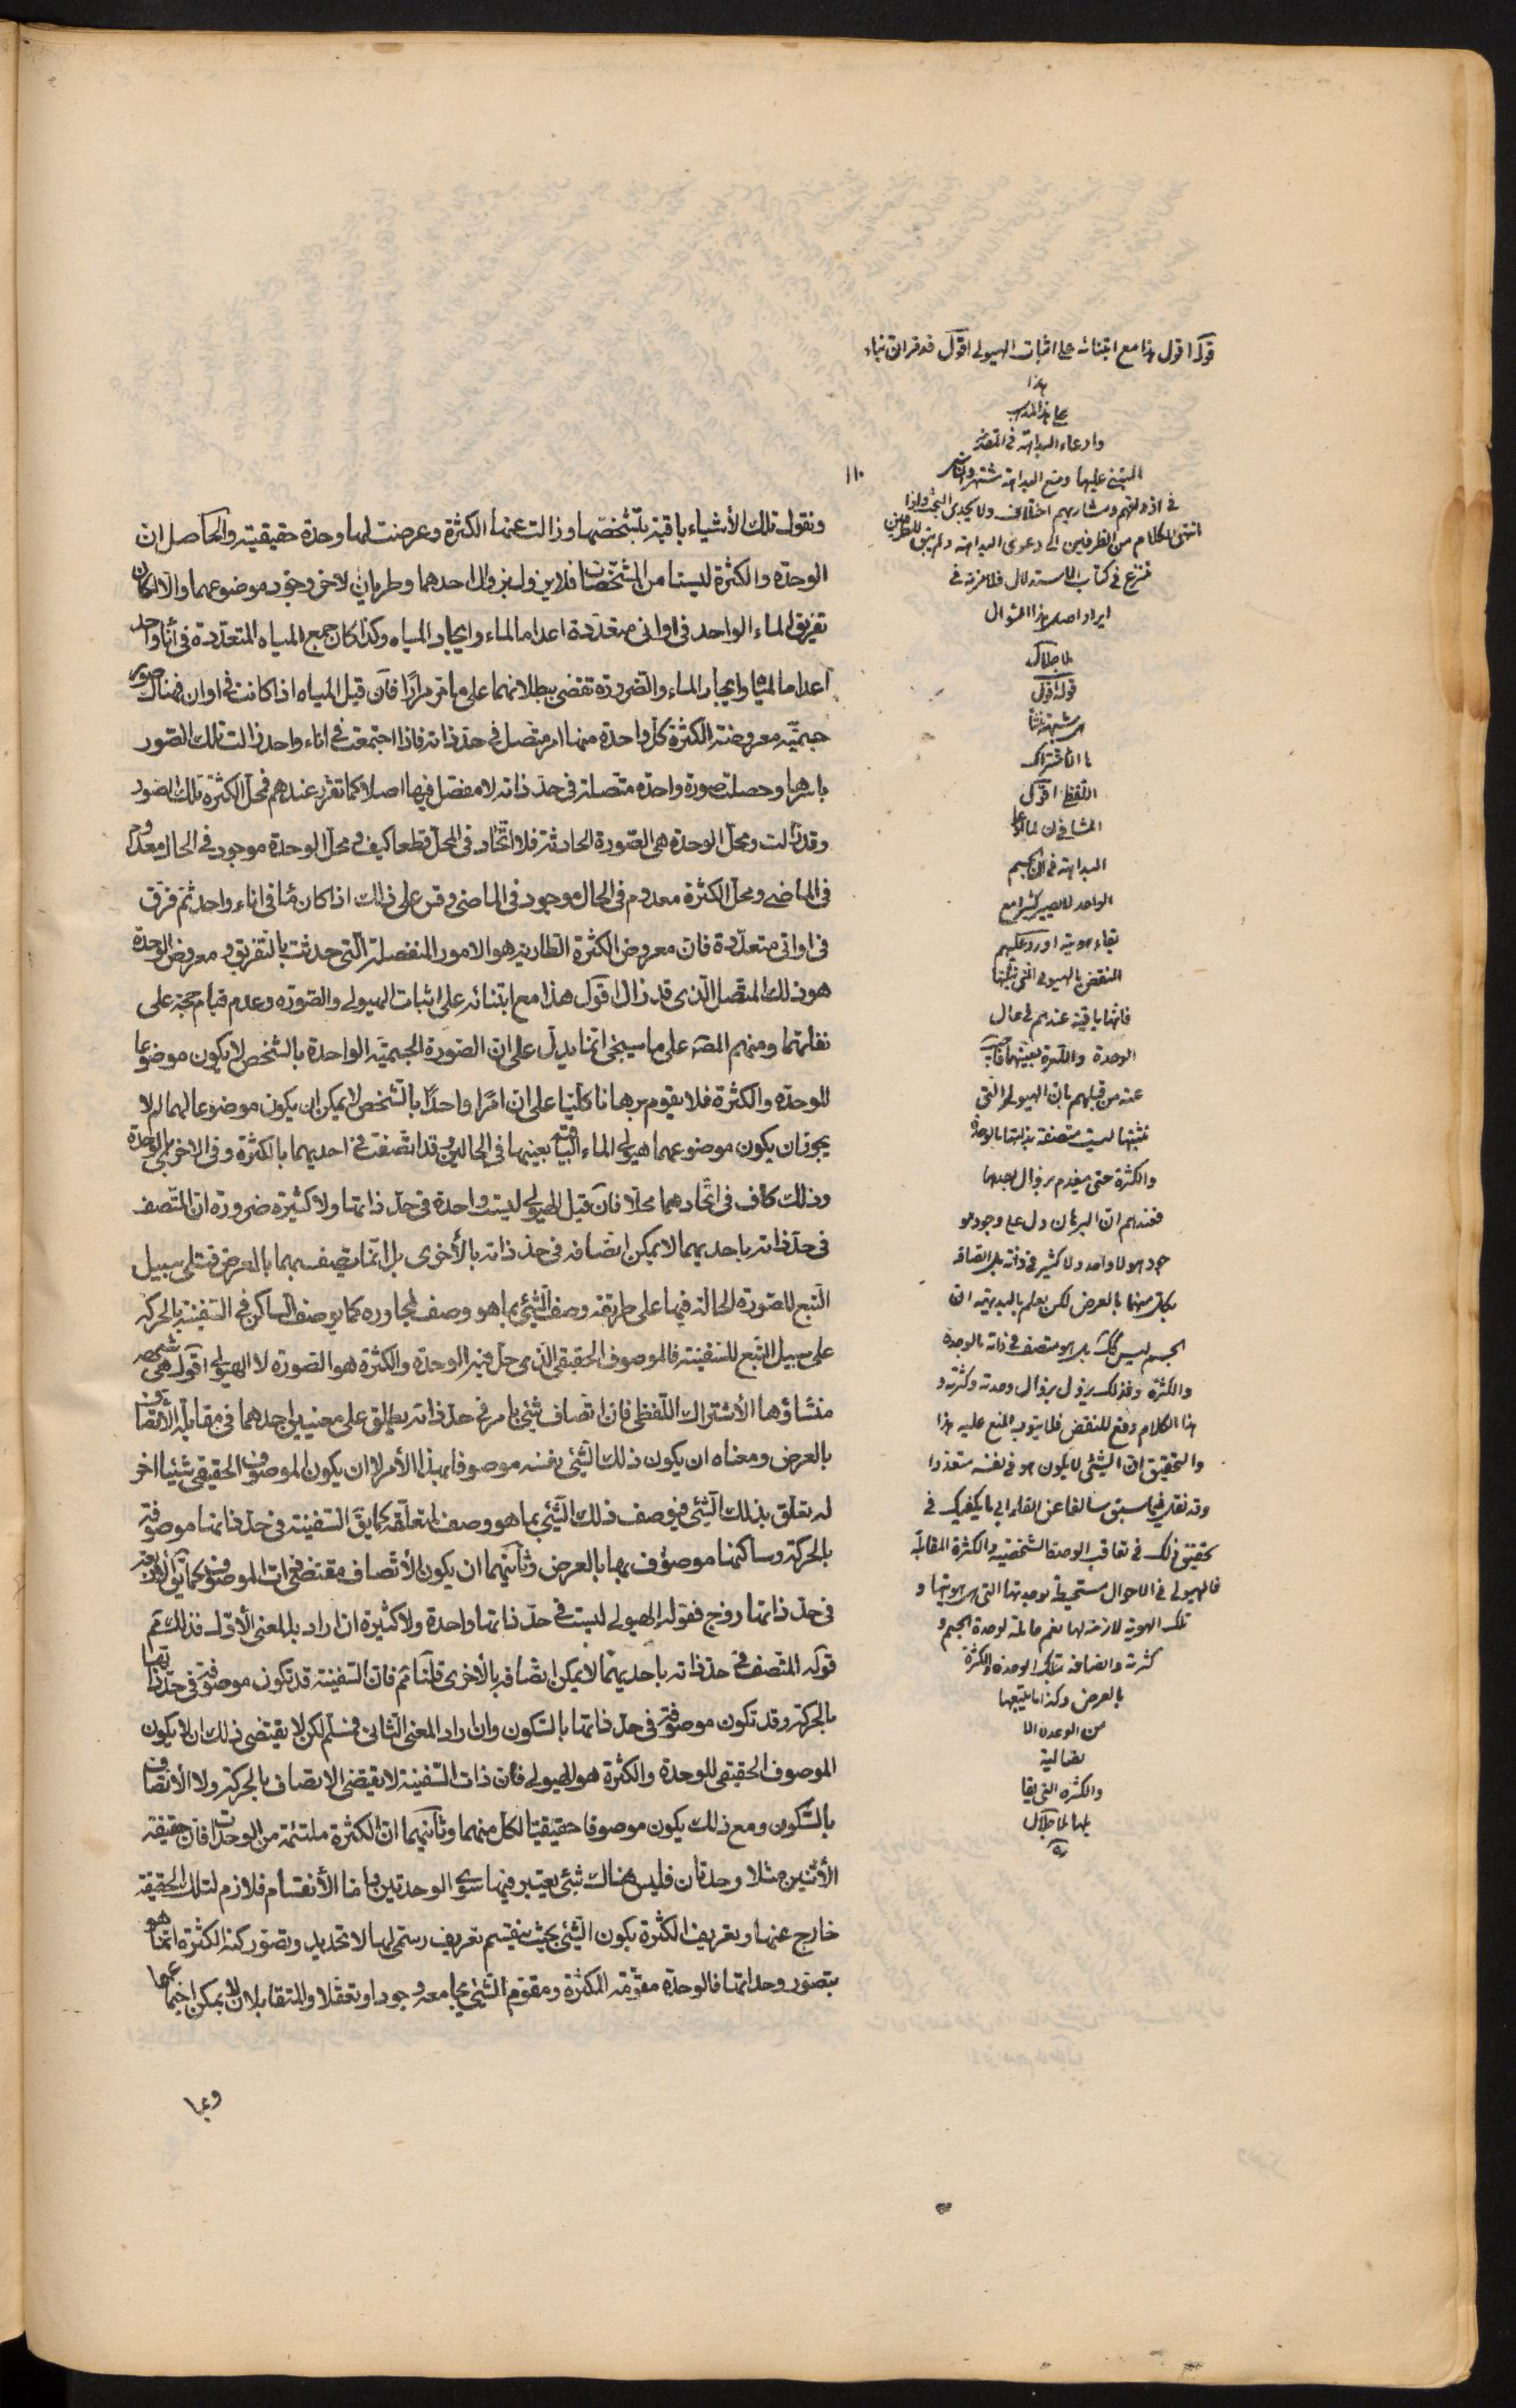 ونقول تلك الأشياء باقية بتشخصها وزالت عنها الكثرة وعرضت لها وحدة حقيقية والحاصل ان
الوحدة والكثرة ليستا من المشخصات فلا يزول بزوال احدهما وطريان لاخرى وجود موضوعهما والا لكان
تفريق الماء الواحد فى اوانى متعددة اعداما لماء وايجاد المياه وكذا كان جمع المياه المتعددة فى اناء واحد
اعداما لمياه وايجاد الماء والضرورة تقضى ببطلانهما على ما مر مرارًا فان قيل المياه اذا كانت فى اوان فهناك صور
جسمية معروضة الكثرة كل واحدة منها امر متصل فى حد ذاته فاذا اجتمعت فى اناء واحد زالت تلك الصور
باسرها وحصلت صورة واحدة متصلة فى حد ذاته لا مفصل فيها اصلا كما تقرر عندهم فمحل الكثرة تلك الصور
وقد زالت ومحل الوحدة هى الصورة الحادثة فلا اتحاد فى المحل قطعا كيف ومحل الوحدة موجود فى الحال معدوم
فى الماضى ومحل الكثرة معدوم فى الحال موجود فى الماضى وقس على ذلك اذا كان ماء فى اناء واحد ثم فرق
فى اوانى متعددة فان معروض الكثرة الطارية هو الامور المنفصلة التى حدثت بالتفريق ومعروض الوحدة
هو ذلك المتصل الذى قد زال اقول هذا مع ابتنائه على اثبات الهيولى والصورة وعدم قيام حجة على
نفاتهما ومنهم المصـ على ما سيجئ انما يدل على ان الصورة الجسمية الواحدة بالشخص لا يكون موضوعا
للوحدة والكثرة فلا يقوم برهانا كليا على ان امرًا واحدًا بالشخص لا يمكن ان يكون موضوعا لهما لم لا
يجوز ان يكون موضوعهما هيولى الماء الباقية بعينها فى الحالين وقد اتصفت فى احديهما بالكثرة وفى الاخرى بالوحدة
وذلك كاف فى اتحادهما محلا فان قيل الهيولى ليست واحدة فى حد ذاتها ولا كثيرة ضرورة ان المتصف
فى حد ذاته باحديهما لا يمكن اتصافه فى حد ذاته بالأخرى بل انما يتصف بهما بالعرض على سبيل
التبع للصورة الحالة فيها على طريقة وصف الشئ بما هو وصف لمجاوره كما يوصف الساكن فى السفينة بالحركة
على سبيل التبع للسفينة فالموصوف الحقيقى الذى حل فيه الوحدة والكثرة هو الصورة لا الهيولى اقول هى شبهة
منشاؤها الأشتراك اللفظى فان اتصاف شئ بامر فى حد ذاته يطلق على معنيين احدهما فى مقابلة الأتصاف
بالعرض ومعناه ان يكون ذلك الشئ نفسه موصوفا بهذا الأمر لا ان يكون الموصوف الحقيقى شيئا اخر
له تعلق بذلك الشئ فيوصف ذلك الشئ بما هو وصف لمتعلقه كما يق السفينة فى حد ذاتها موصوفة
بالحركة وساكنها موصوف بها بالعرض وثانيهما ان يكون الأتصاف مقتضى ذات الموصوف كما يق الأربعة
فى حد ذاتها زوج فقوله الهيولى ليست فى حد ذاتها واحدة ولا كثيرة ان اراد به المعنى الأول فذلك مم
قوله المتصف فى حد ذاته باحديهما لا يمكن اتصافه بالأخرى قلنا مم فان السفينة قد تكون موصوفة فى حد ذاتها
بالحركة وقد تكون موصوفة فى حد ذاتها بالسكون وان اراد المعنى الثانى فمسلم لكن لا يقتضى ذلك ان لا يكون
الموصوف الحقيقى للوحدة والكثرة هو الهيولى فان ذات السفينة لا تقتضى الاتصاف بالحركة ولا الأتصاف
بالسكون ومع ذلك يكون موصوفا حقيقيا لكل منهما وثانيهما ان الكثرة ملتئمة من الوحدات فان حقيقة
الأثنين مثلا وحدتان فليس هناك شئ يعتبر فيها سوى الوحدتين واما الأنقسام فلازم لتلك الحقيقة
خارج عنها وتعريف الكثرة بكون الشئ بحيث ينقسم تعريف رسمى لها لا تحديد وتصور كنه الكثرة انما هو
بتصور وحداتها فالوحدة مقومة للكثرة ومقوم الشئ يجامعه وجودا وتعقلا والمتقابلان لا يمكن اجتماعهما
وما
قوله اقول هذا مع ابتنائه على اثبات الهيولى اقول
هذا
على هذا المذهب
وادعاء البداهة فى
المبتنى عليها ومنع البداهة
انتهى الكلام من الطرفين الى دعوى البداهة
فى كتاب الاستدلال
ايراد اصل هذا السؤال
ملا جلال
قوله اقول
هى شبهة منشأ
ها الاشتراك
اللفظى اقول
البداهة فى ان الجسم
الواحد لا يصير كثيرا مع
بقاء هويته اورد عليهم
النقض بالهيولى التى
فانها باقية عندهم فى حال
الوحدة والكثرة بعينها
عنه من قبلهم بان الهيولى التى
نثبتها ليست متصفة بذاتها بالوحدة
والكثرة حتى ينعدم بزوال احدهما
فعندهم ان البرهان دل على وجود
جوهر لا واحد ولا كثير فى ذاته بل اتصافه
بكل منهما بالعرض لكن يعلم بالبديهة ان
الجسم ليس كك بل هو متصف فى ذاته بالوحدة
والكثرة وكذلك يزول بزوال وحدته وكثرته و
هذا الكلام دفع للنقض فلا يتوجه المنع عليه هذا
والتحقيق ان الشئ لا يكون هو فى نفسه متعددا
تحقيق ذلك فى تعاقب الوحدة الشخصية والكثرة المقابلة
فالهيولى فى الاحوال مستحفظة بوحدتها التى هى هويتها و
تلك الهوية لازمة لها نعم قابلة لوحدة الجسم و
كثرته واتصافه بتلك الوحدة والكثرة
بالعرض وكذا ما يتبعها
من الوحدة الا
تصالية
والكثرة التى يقا
بلها ملا جلال
ره
١١٠